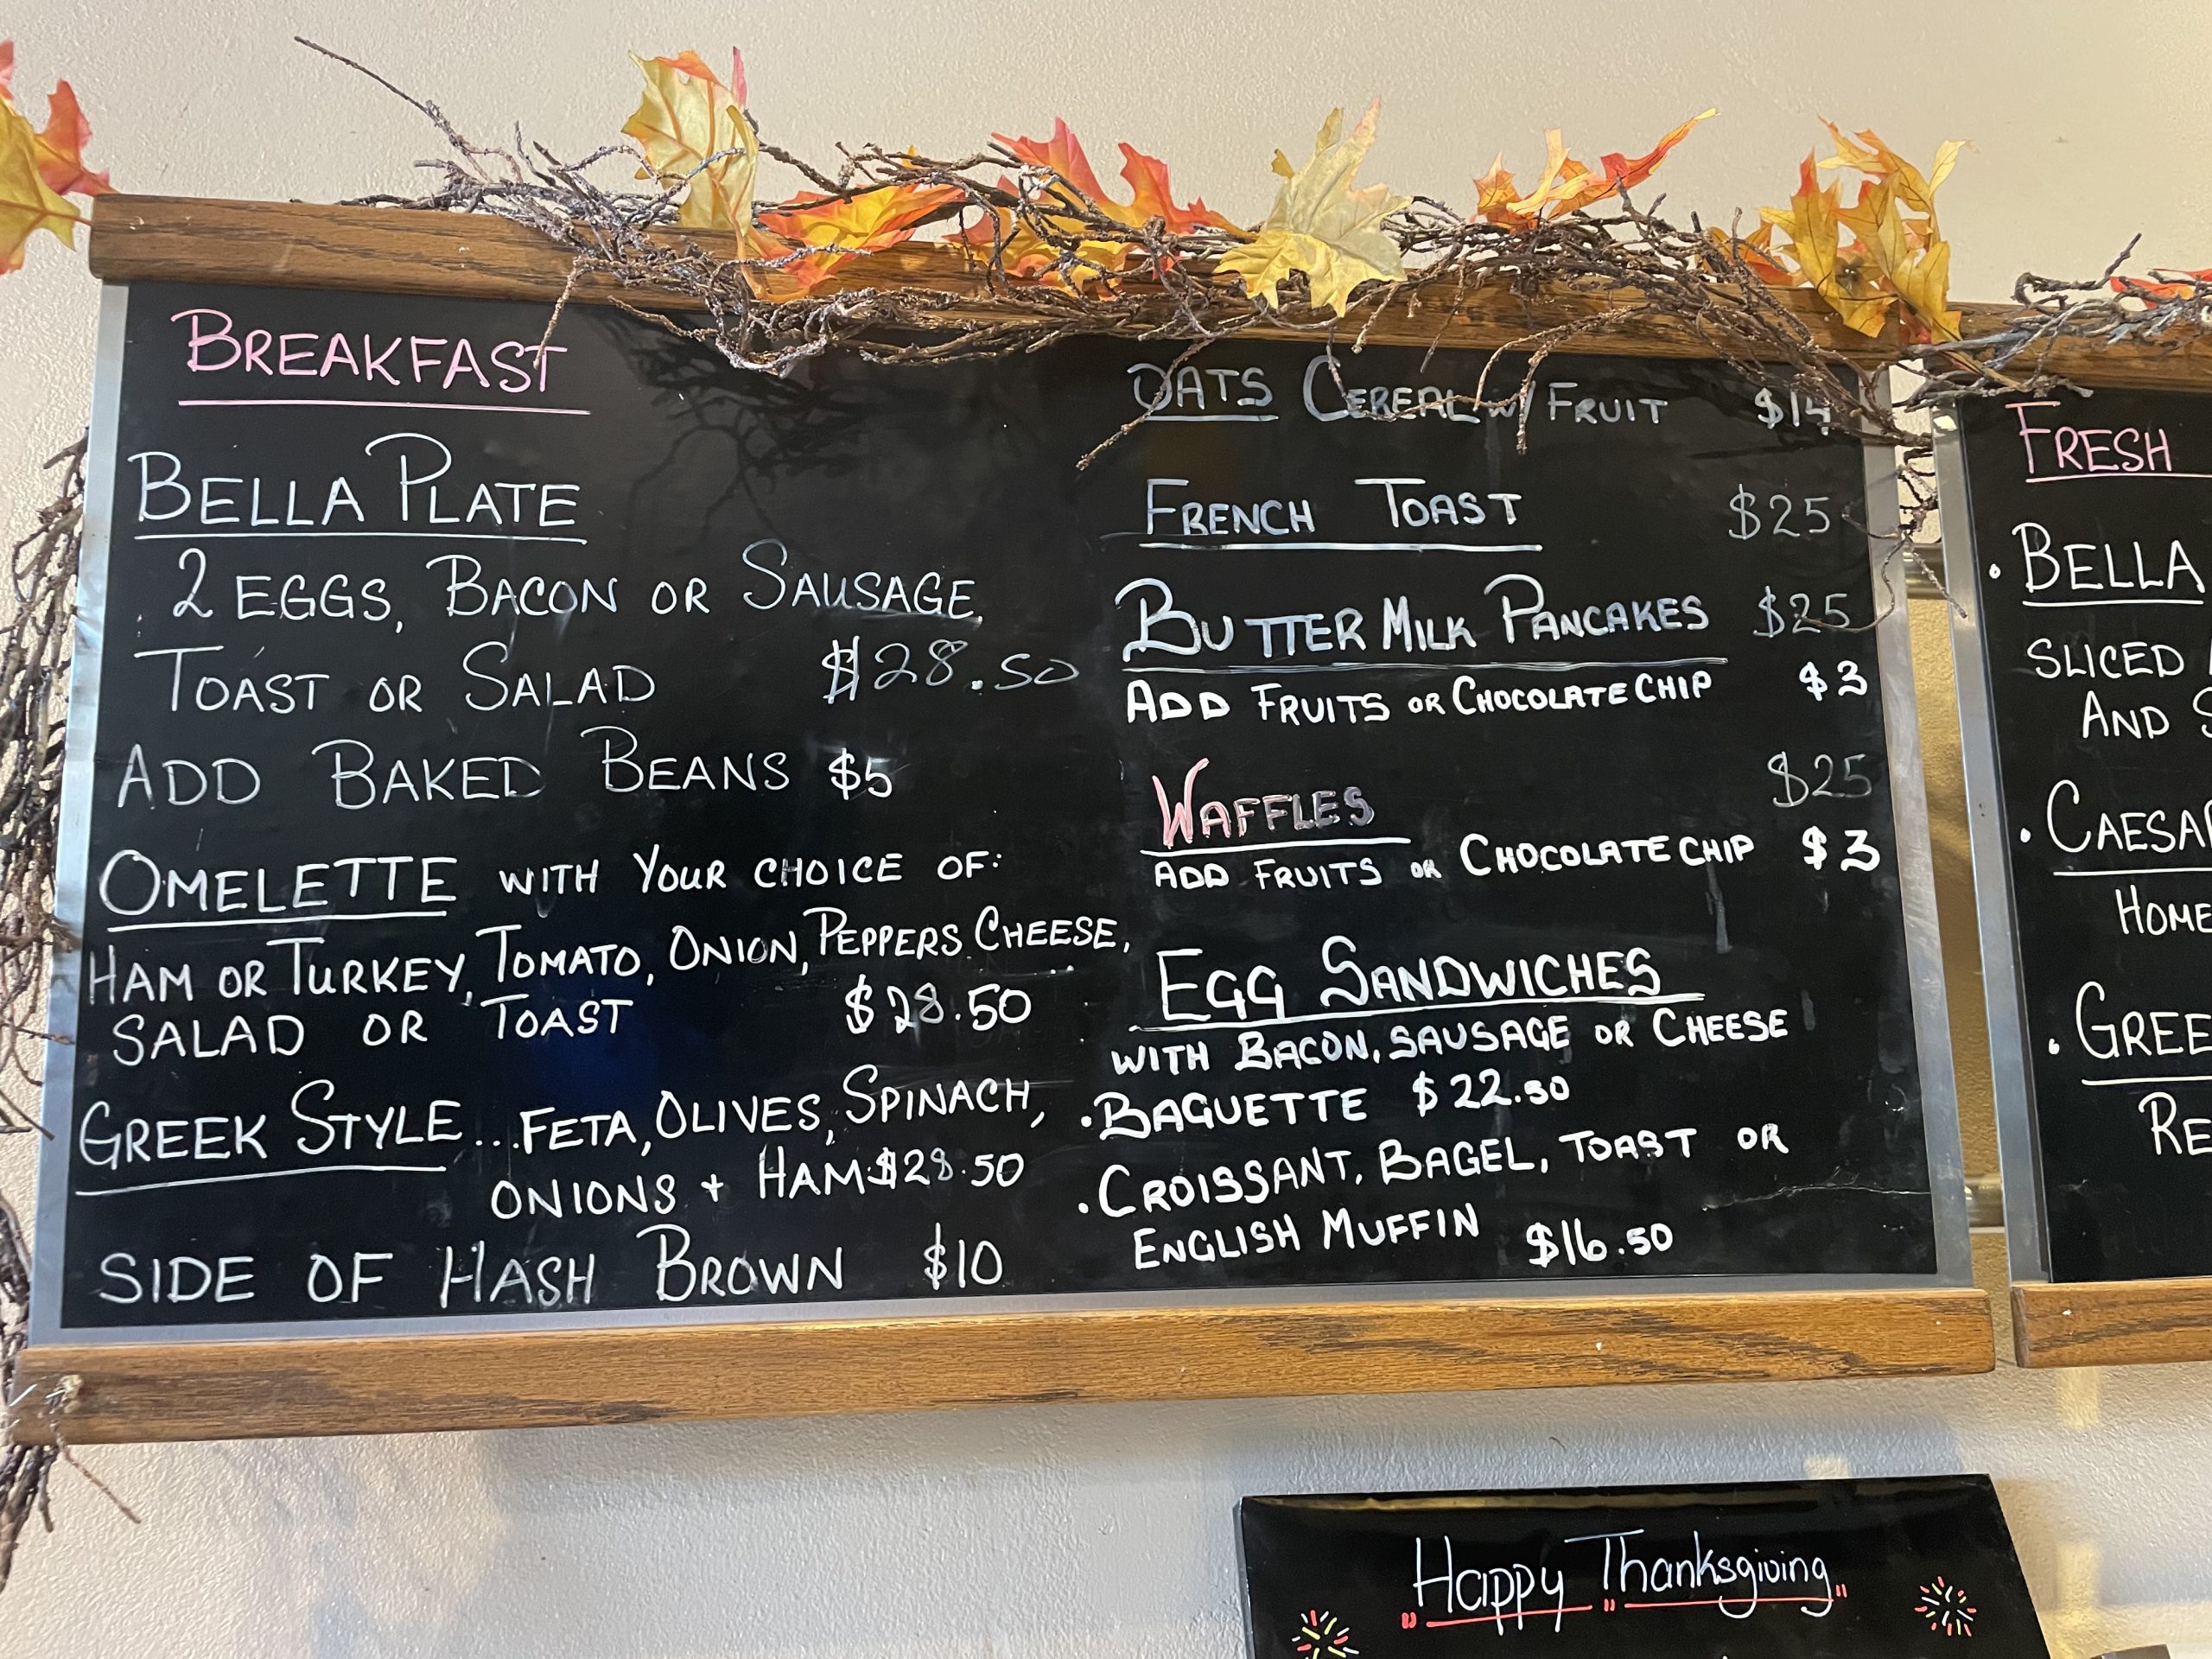 BREAKFAST
BELLA PLATE
2 EGGS, BACON OR SAUSAGE,
TOAST OR SALAD $28.50
ADD BAKED BEANS $5
OMELETTE WITH YOUR CHOICE OF:
HAM OR TURKEY, TOMATO, ONION, PEPPERS CHEESE,
SALAD OR TOAST $28.50
GREEK STYLE...FETA, OLIVES, SPINACH,
ONIONS + HAM $28.50
SIDE OF HASH BROWN $10
OATS CEREAL W/ FRUIT $14
FRENCH TOAST $25
BUTTER MILK PANCAKES $25
ADD FRUITS OR CHOCOLATE CHIP $3
WAFFLES $25
ADD FRUITS OR CHOCOLATE CHIP $3
EGG SANDWICHES
WITH BACON, SAUSAGE OR CHEESE
• BAGUETTE $22.50
• CROISSANT, BAGEL, TOAST OR
ENGLISH MUFFIN $16.50
FRESH
• BELLA
SLICED
AND
• CAESAR
HOME
• GREE
RE
"Happy " Thanksgiving "